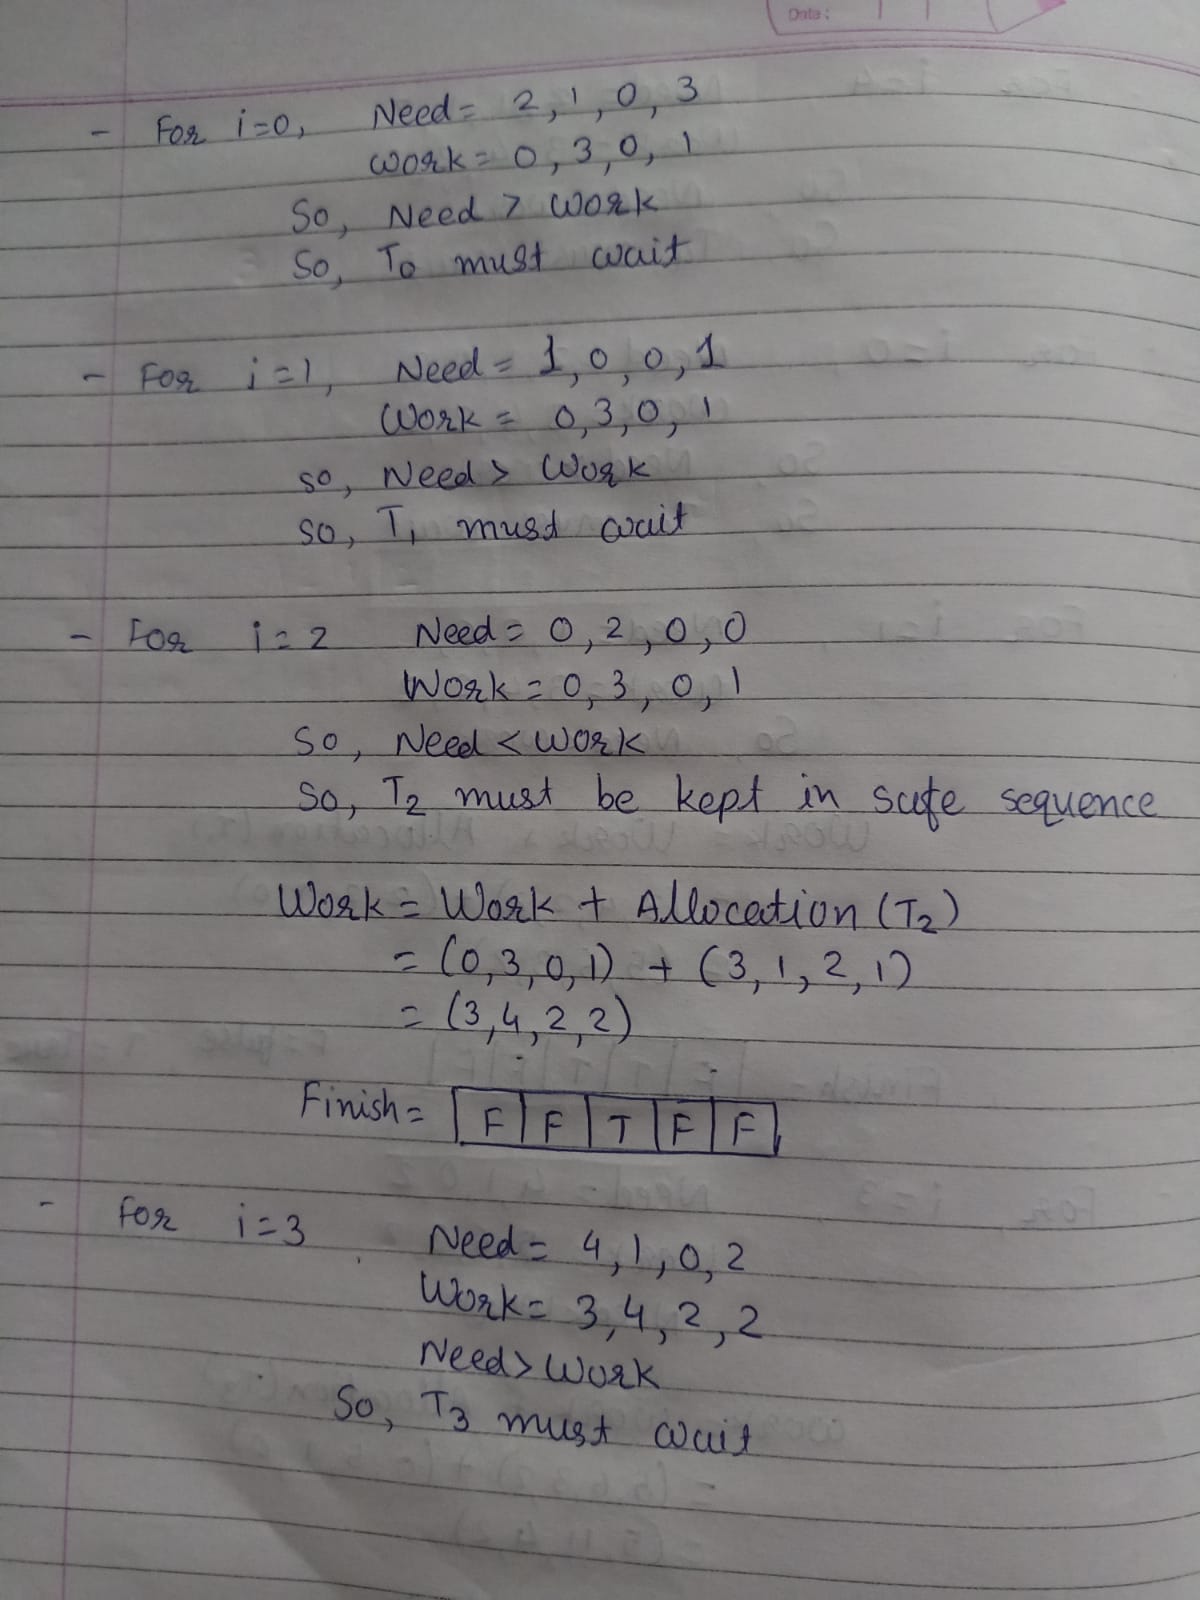 Date:
- For i=0, Need = 2, 1, 0, 3
Work = 0, 3, 0, 1
So, Need > Work
So, T0 must wait
- For i=1, Need = 1, 0, 0, 1
Work = 0, 3, 0, 1
so, Need > Work
so, T1 must wait
- For i=2 Need = 0, 2, 0, 0
Work = 0, 3, 0, 1
So, Need < Work
So, T2 must be kept in safe sequence
Work = Work + Allocation (T2)
= (0, 3, 0, 1) + (3, 1, 2, 1)
= (3, 4, 2, 2)
Finish = F F T F F
- For i=3 Need = 4, 1, 0, 2
Work = 3, 4, 2, 2
Need > Work
So, T3 must wait